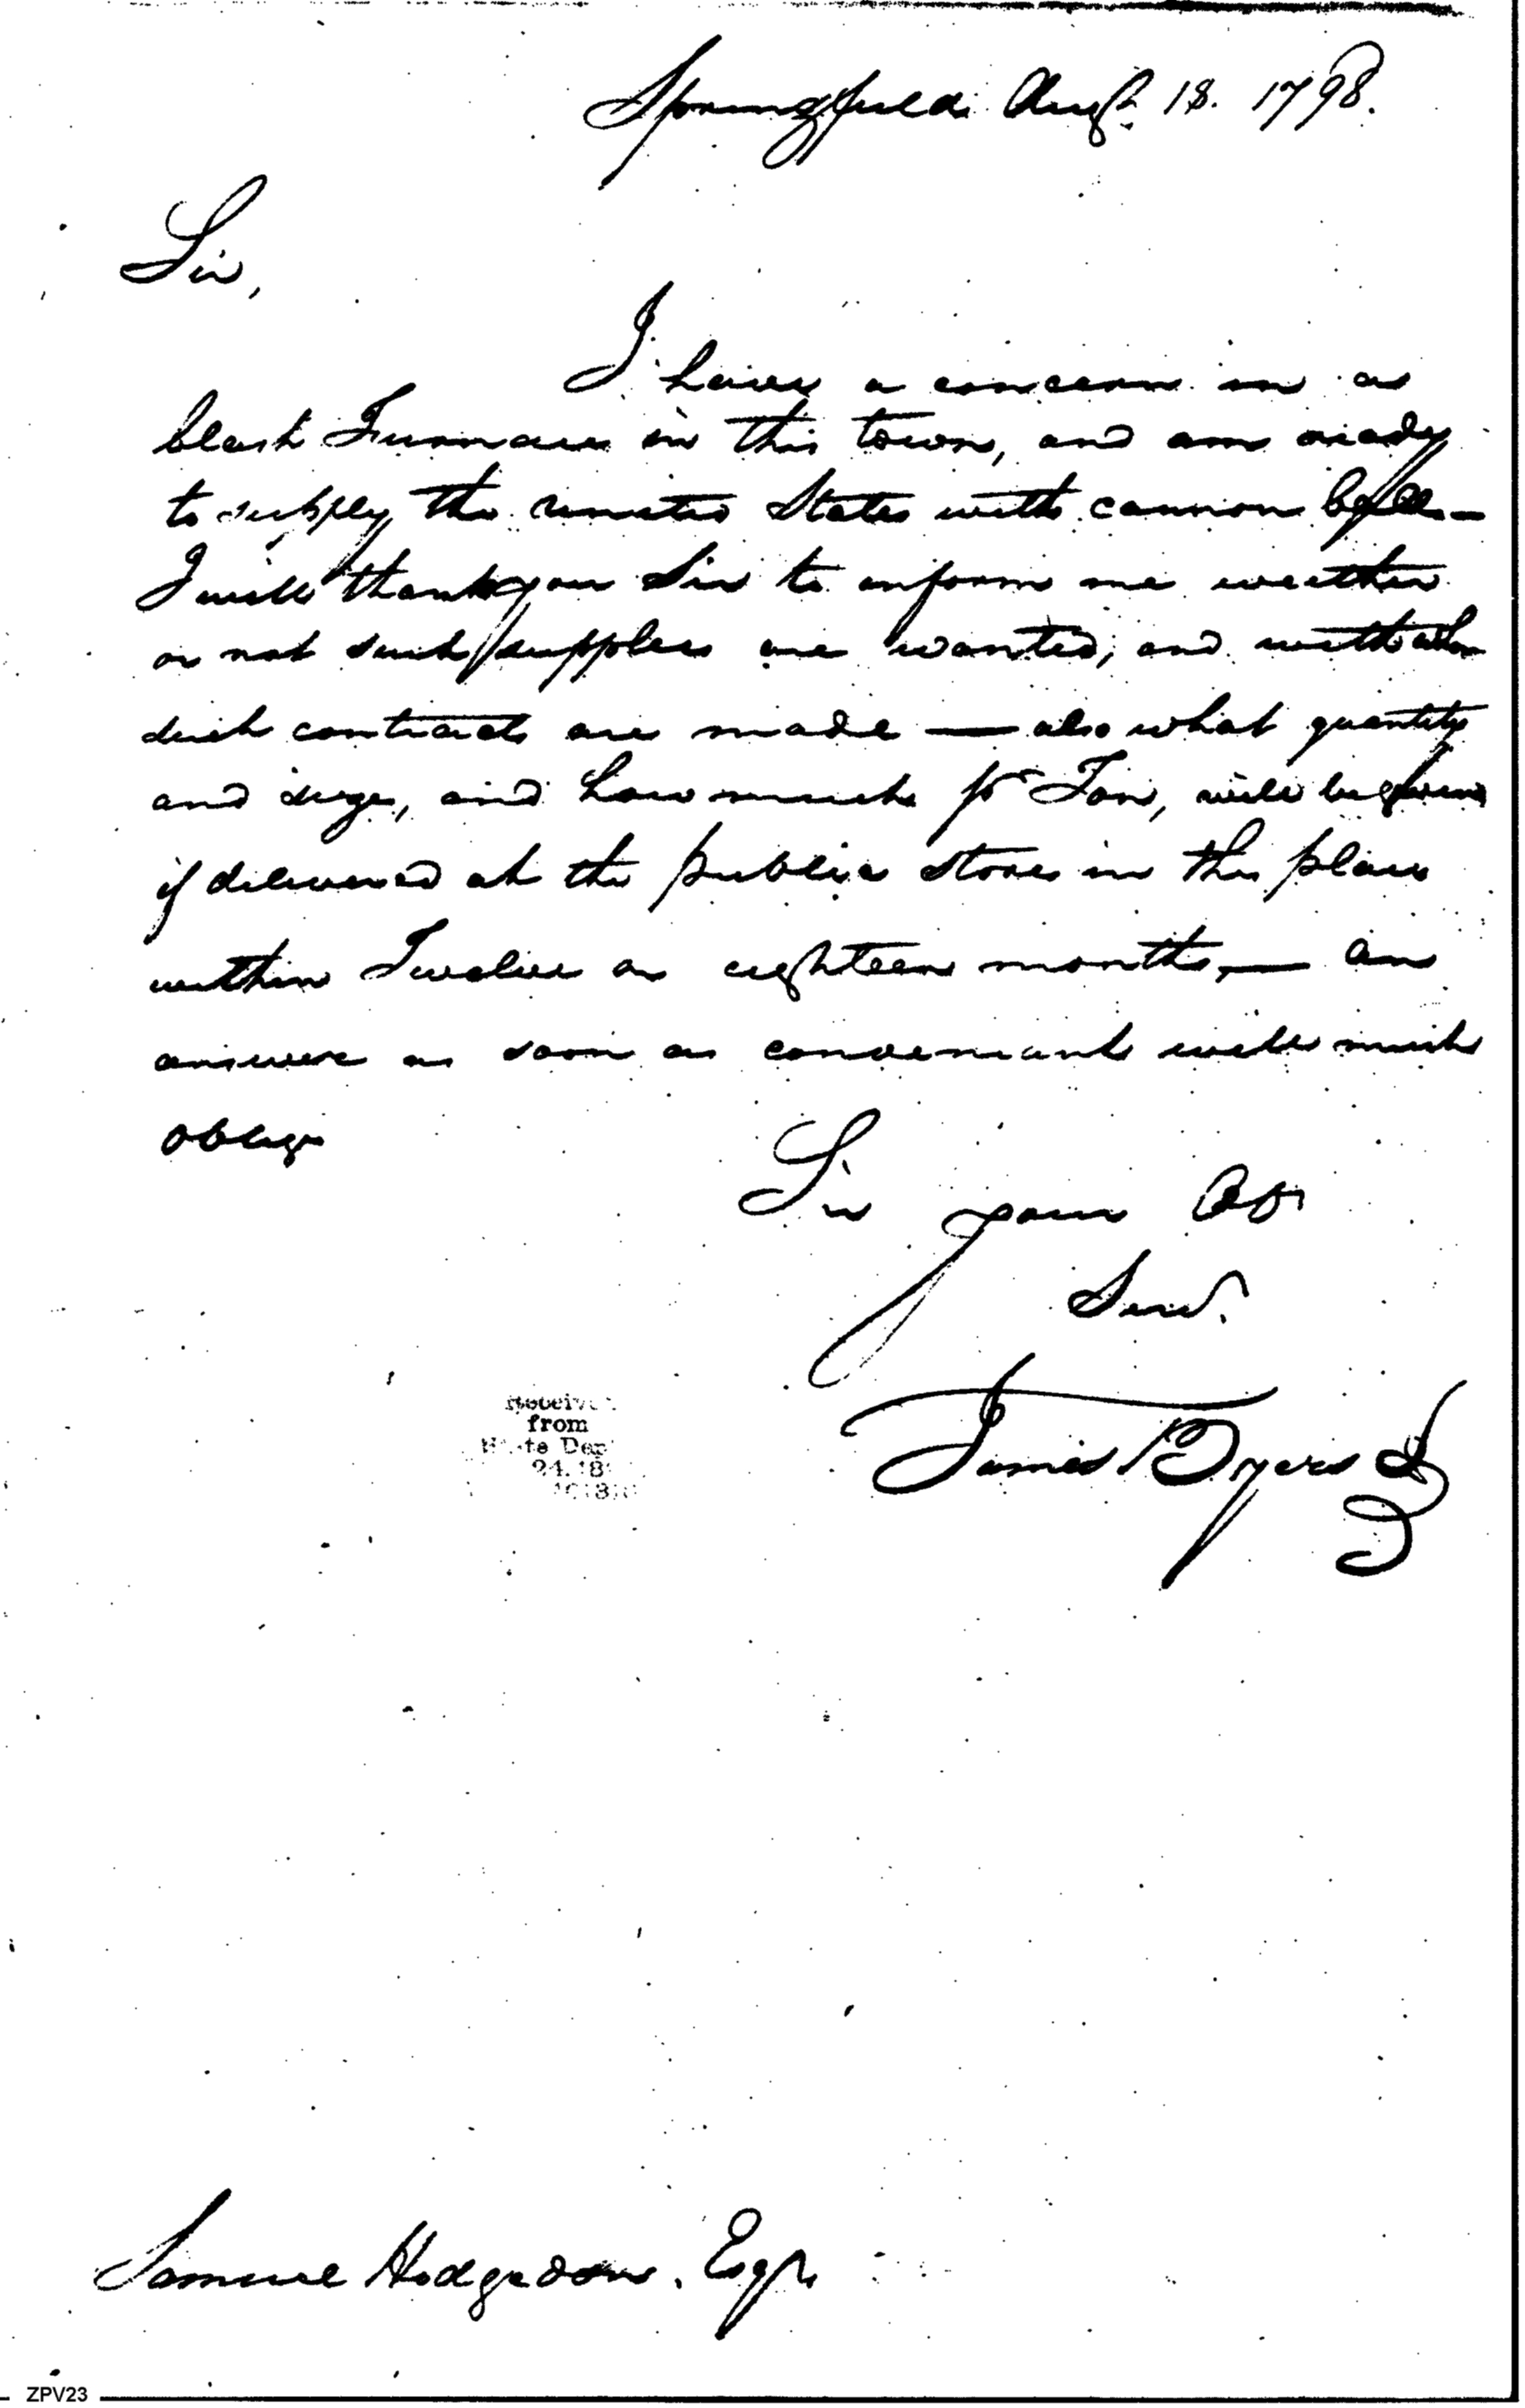 Springfield Augt. 18. 1798.
Sir,
I have a concern in a
blast Furnace in this town, and am ready
to supply the united States with cannon ball—
I will thank you Sir to inform me weether
or not such supplies are wanted, and with whom
such contracts are made — also what quantity
and size, and how much pr Ton, will be given
if delivered at the public store in this place
within Twelve or eighteen months, — an
answer as soon as conveniant will much
oblige
Sir your Ob
Servt.
James Byers
from
Dep
24. 18
Samuel Hodgsdon. Esqr.
ZPV23